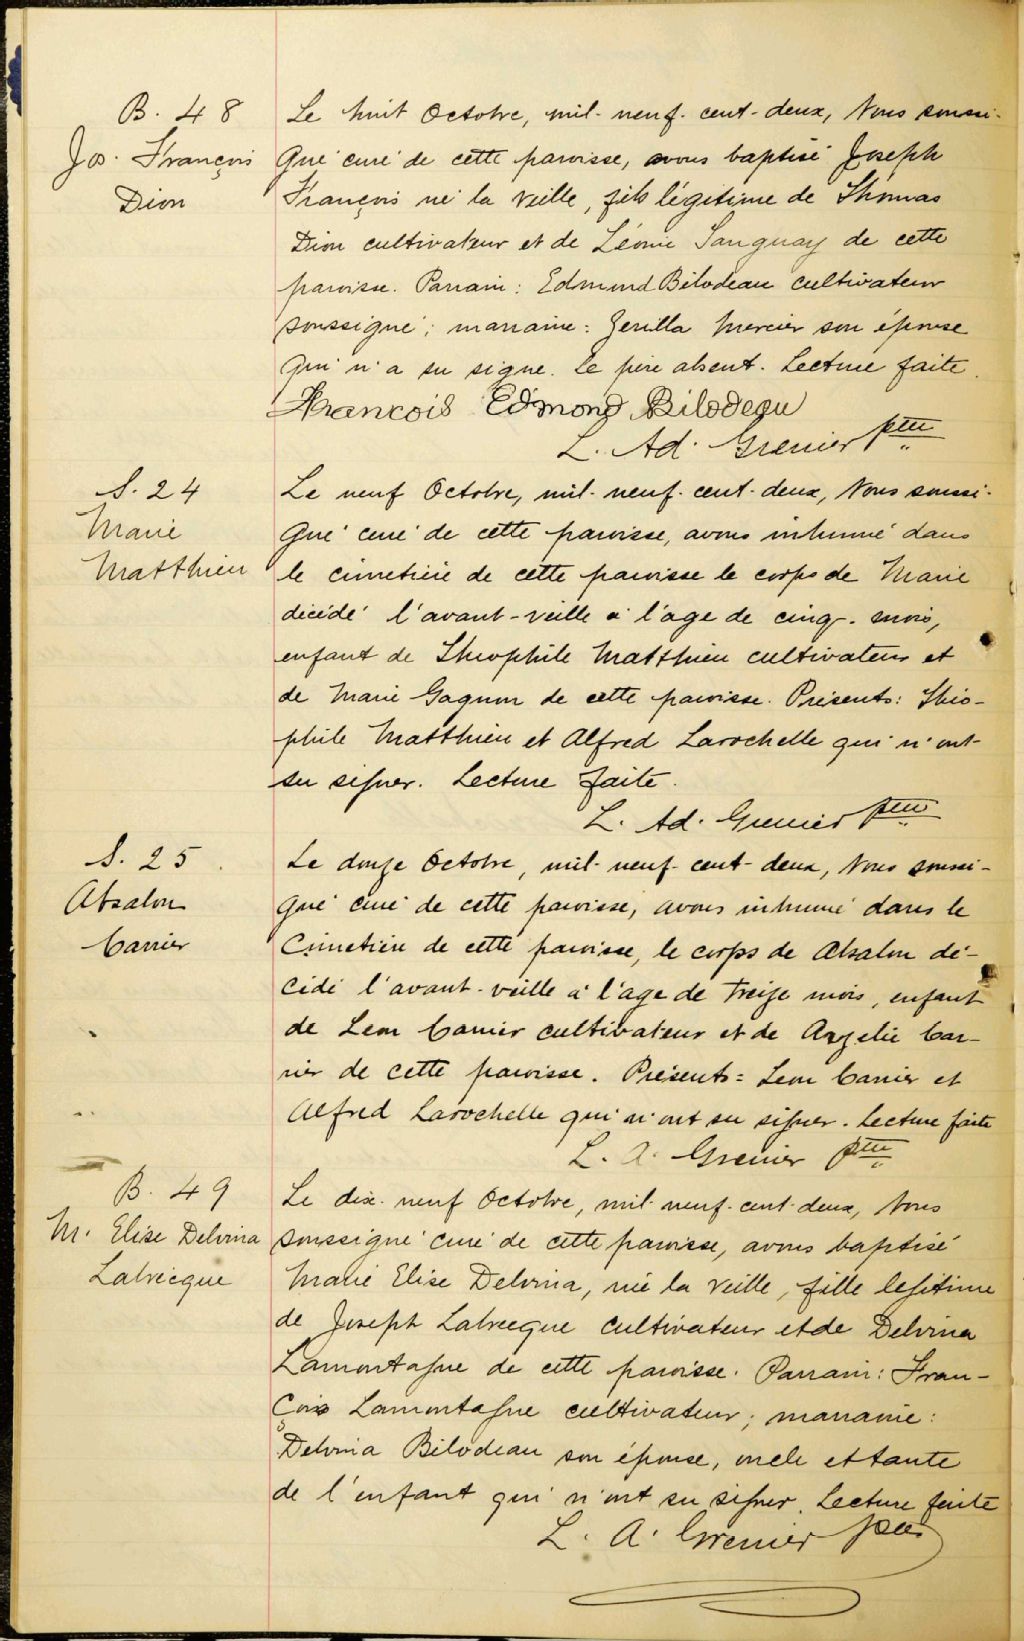 B. 48
Jos. François
Dion
Le huit Octobre, mil-neuf-cent-deux, Nous soussi-
gné curé de cette paroisse, avons baptisé Joseph
François né la veille, fils légitime de Thomas
Dion cultivateur et de Léonie Tanguay de cette
paroisse. Parrain: Edmond Bilodeau cultivateur
soussigné; marraine: Zerilla Mercier son épouse
qui n'a su signe. Le père absent. Lecture faite.
Francois Edmond Bilodeau
L. Ad. Grenier ptre
S. 24
Marie
Matthieu
Le neuf Octobre, mil-neuf-cent-deux, Nous soussi-
gné curé de cette paroisse, avons inhumé dans
le cimetière de cette paroisse le corps de Marie
décédé l'avant-veille à l'age de cinq-mois,
enfant de Théophile Matthieu cultivateur et
de Marie Gagnon de cette paroisse. Présents: Théo-
phile Matthieu et Alfred Larochelle qui n'ont
su signer. Lecture faite.
L. Ad. Grenier ptre
S. 25
Absalon
Carrier
Le douze Octobre, mil-neuf-cent-deux, Nous soussi-
gné curé de cette paroisse, avons inhumé dans le
Cimetière de cette paroisse, le corps de Absalon dé-
cédé l'avant-veille à l'age de treize mois, enfant
de Léon Carrier cultivateur et de Azélie Car-
rier de cette paroisse. Présents: Léon Carrier et
Alfred Larochelle qui n'ont su signer. Lecture faite
L. A. Grenier ptre
B. 49
M. Elise Delvina
Labrecque
Le dix-neuf Octobre, mil-neuf-cent-deux, Nous
soussigné curé de cette paroisse, avons baptisé
Marie Elise Delvina, née la veille, fille legitime
de Joseph Labrecque cultivateur et de Delvina
Lamontagne de cette paroisse. Parrain: Fran-
çois Lamontagne cultivateur; marraine:
Delvina Bilodeau son épouse, oncle et tante
de l'enfant qui n'ont su signer. Lecture faite
L. A. Grenier ptre